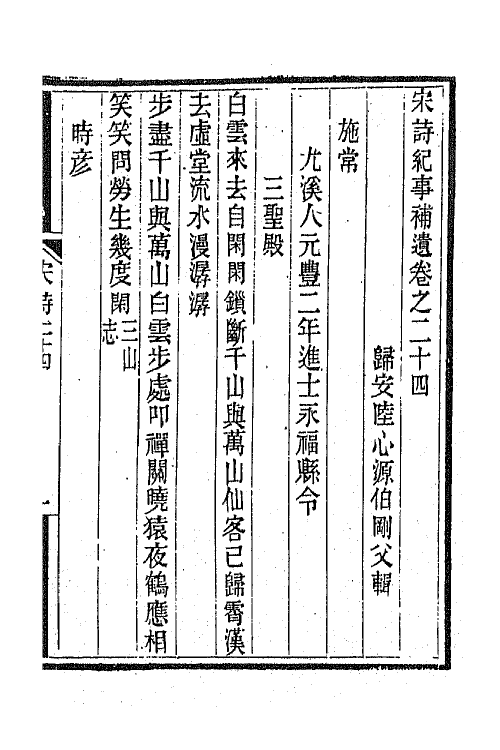 宋詩紀事補遺卷之二十四
歸安陸心源伯剛父輯
施常
尤溪人元豐二年進士永福縣令
三聖殿
白雲來去自閑閑鎖斷千山與萬山仙客已歸霄漢
去虛堂流水漫潺潺
步盡千山與萬山白雲步處叩禪關曉猿夜鶴應相
笑笑問勞生幾度閑三山志
時彥